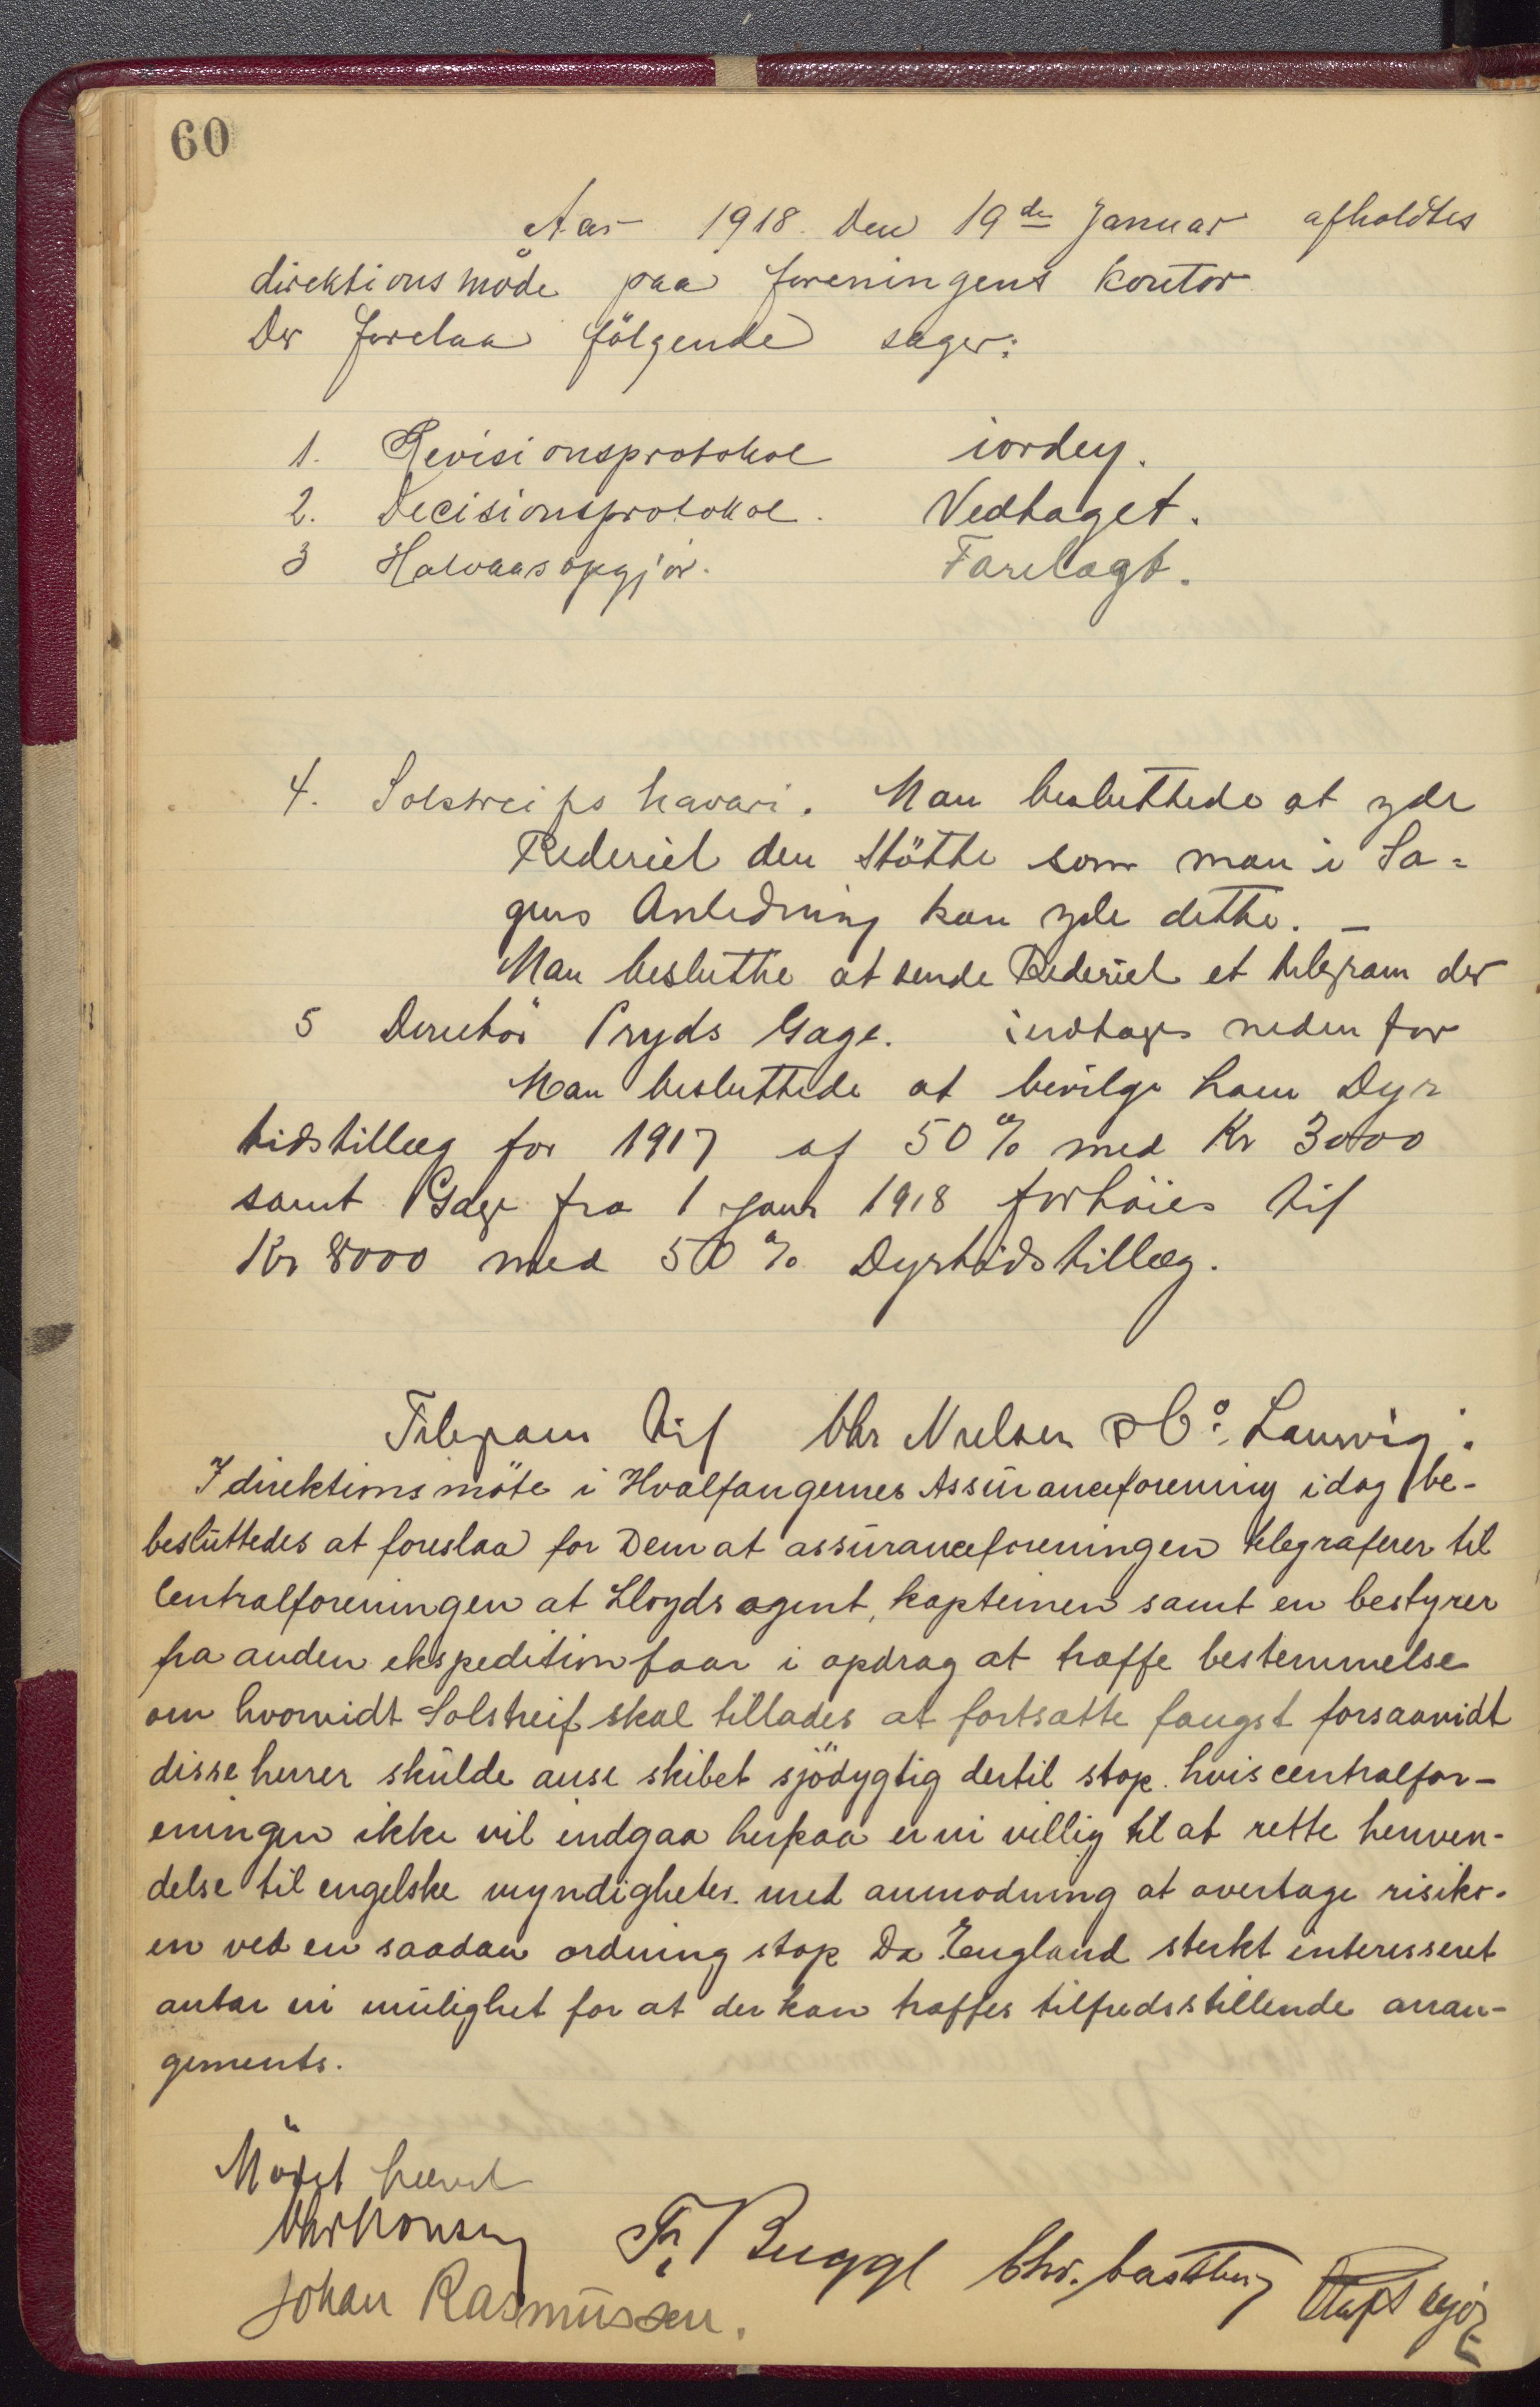 60
Aar 1918. Den 19de Januar afholdtes
direktionsmøde paa foreningens kontor
Der forelaa følgende sager:
1. Revisionsprotokol iorden.
2. Decisionsprotokol. Vedtaget.
3 Halvaarsopgjör. Forelagt.
4. Solstreifs havari. Man besluttede at yde
Rederiet den Støtte som man i Sa=
gens Anledning kan yde dette. –
Man beslutte at sende Rederiet et telegram der
5 Direktør Pryds Gage. indtages nedenfor
Man besluttede at bevilge ham Dyr
tidstillæg for 1917 af 50% med Kr 3000
samt Gage fra 1 Janr 1918 forhøies til
Kr 8000 med 50% Dyrtidstillæg.
Telegram til Chr Nielsen & Co: Laurvig.
I direktionsmöte i Hvalfangernes Assüranceforening idag be-
beslüttedes at foreslaa for Dem at assüranceforeningen telegraferer til
Centralforeningen at Lloyds agent, kapteinen samt en bestyrer
fra anden ekspedition faar i opdrag at træffe bestemmelse
om hvorvidt Solstreif skal tillades at fortsætte fangst forsaavidt
disse herrer skülde anse skibet sjödygtig dertil stop. hvis centralfor-
eningen ikke vil indgaa herpaa er vi villig til at rette henven-
delse til engelske myndigheter med anmodning at overtage risiko-
en ved en saadan ordning stop Da England sterkt interesseret
antar vi mülighet for at der kan træffes tilfredsstillende arran-
gements.
Mötet hævet
Johan Rasmüssen. Fr. Bugge Chr.